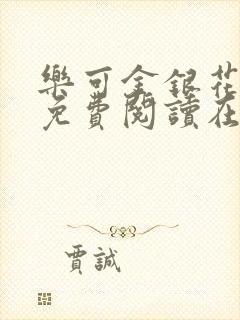 樂可金銀花
免費閱讀在
賈誠